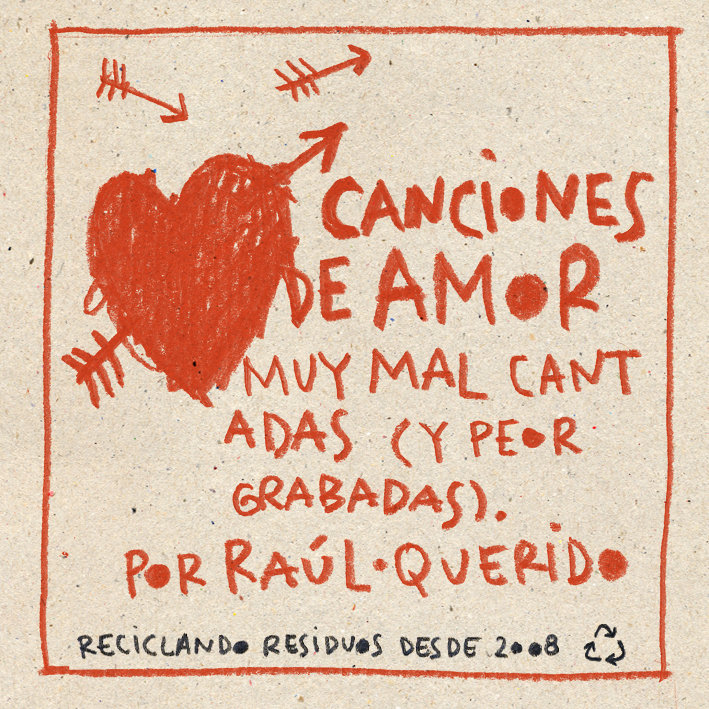 CANCIONES
DE AMOR
MUY MAL CANT
ADAS (Y PEOR
GRABADAS).
POR RAÚL·QUERIDO
RECICLANDO RESIDUOS DESDE 2008